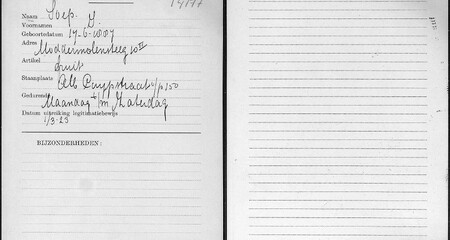 Naam Soep. J.
Voornamen
Geboortedatum 17-6-1887
Adres Moddermolensteeg 10 II
Artikel fruit
Staanplaats Alb Cuypstraat 150
Gedurende Maandag t/m Zaterdag
Datum uitreiking legitimatiebewijs
1/3-23
BIJZONDERHEDEN: